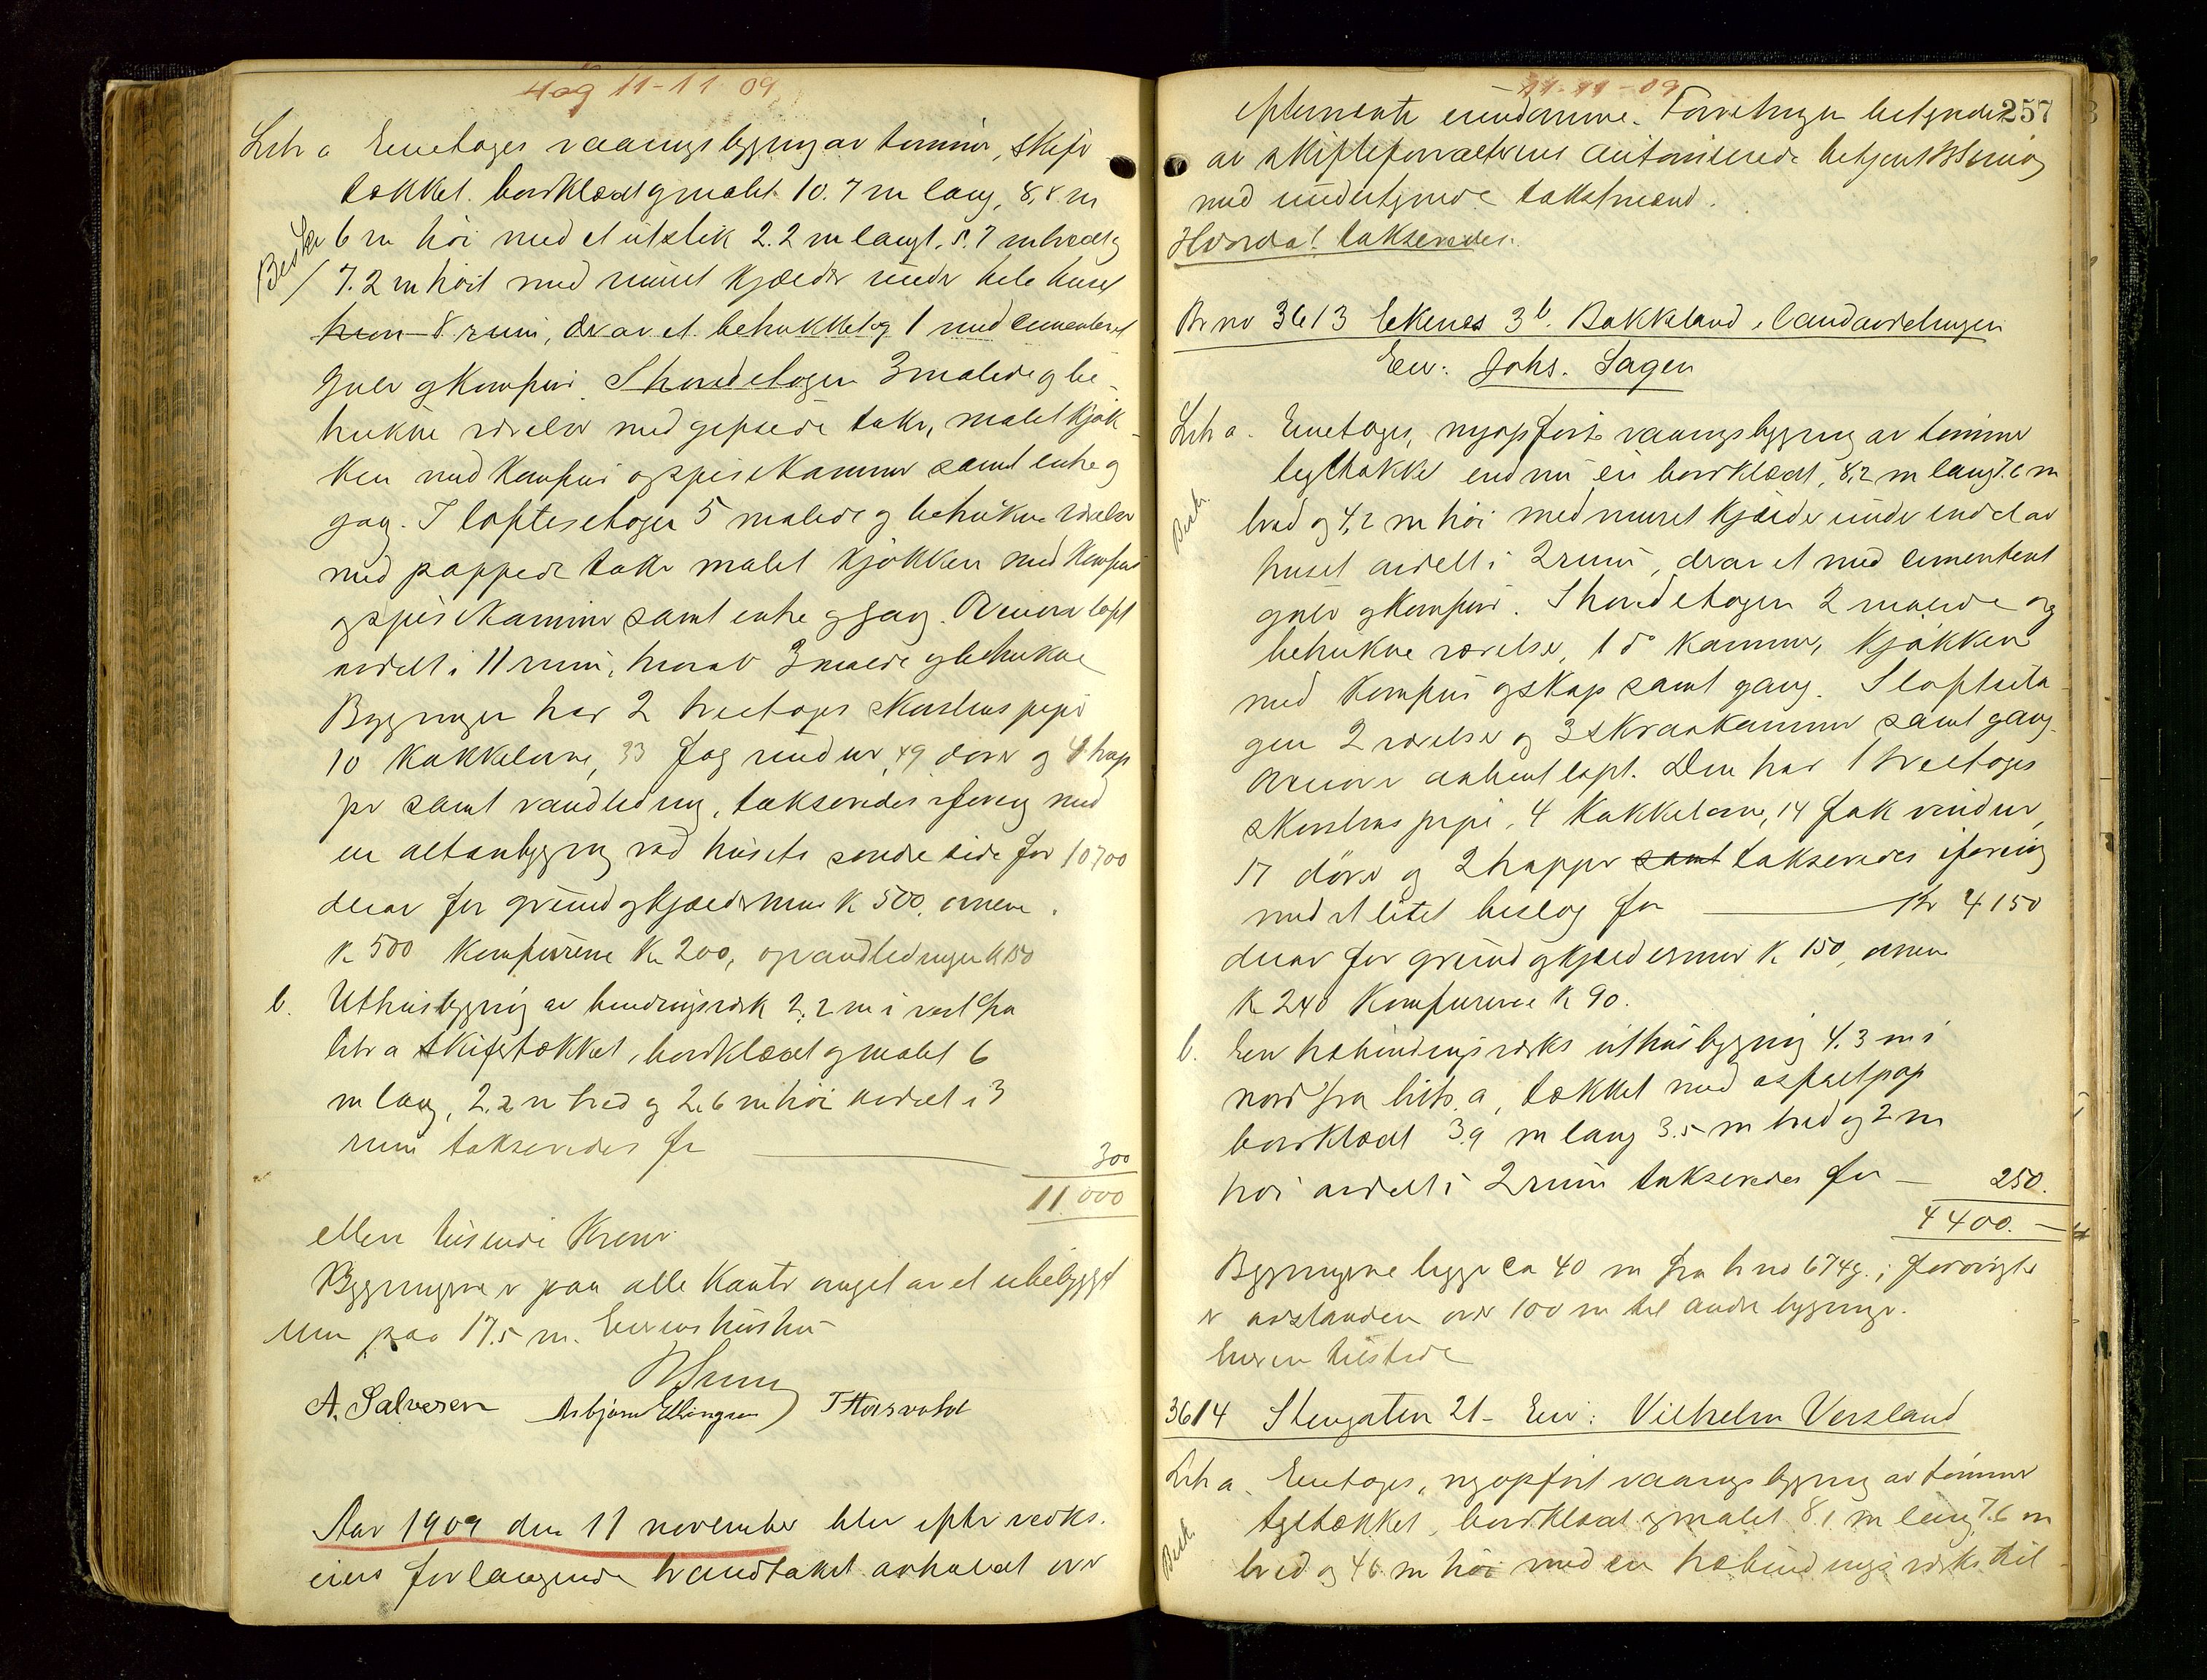 4 og 11-11 09
Litr a Enetages vaaningsbygning av tømmer, skifer
tækket. bordklædt og malet 10.7 m lang, 8,8 m
Beskr 6 m høi med et utstik 2.2 m langt. 5.7 m bredt og
7.2 m høit med muret kjælder under hele huset
8 rum, derav et betrukket og 1 med cementeret
gulv og komfur. I hovedetagen 3 malede og be-
trukne værelser med gipsede take, malet kjøk-
ken med komfur og spisekammer samt entre og
gang. I loftsetagen 5 malede og betrukne værelser
med pappede take malet kjøkken med komfur
og spisekammer samt entre og gang. Ovenover loft
avdelt i 11 rum, hvorav 3 malede og betrukne
Bygningen har 2 treetages skorstenspiper
10 kakkelovne, 33 fag vinduer, 49 dører og 4 trap
per samt vandledning, takseredes iforening med
en altanbygning ved husets søndre side for 10700
derav for grund og kjældermur K 500, ovnene
K 500 komfurene K 200, og vandledningen K 150
b. Uthusbygning av bindingsverk 2,2 m i vest fra
litr a skifertækket, bordklædt og malet 6
m lang, 2.2 m bred og 2,6 m høi avdelt i 3
rum takseredes for 300
11.000
elleve tusinde Kroner.
Bygningerne er paa alle kanter omgit av et ubebygget
rum paa 17.5 m.
A. Salvesen Asbjørn Ellingsen T Horsvold
Aar 1909 den 11 november blev efter vedks.
eiers forlangende brandtakst avholdt over
11-11-09
257
efternævnte eiendomme. Forretningen betjentes
av skifteforvalterens autoriserede betjent
med undertegnede takstmænd.
Hvorda! takseredes.
Br no 3613 Ekenes 3b. Bakkland, landavdelingen
Eier: Johs. Sagen
Litr a. Enetages, nyopført vaaningsbygning av tømmer
Beskr. tegltækket endnu ei bordklædt, 8,2 m lang 7.6 m
bred og 4,2 m høi med muret kjælder under endel av
huset avdelt i 2 rum, derav et med cementeret
gulv og komfur. I hovedetagen 2 malede og
betrukne værelser, 1 do kammer, kjøkken
med komfur og skap samt gang. I loftseta-
gen 2 værelser og 3 skraakammer samt gang.
Ovenover aapent loft. Den har 1 treetages
skorstenspipe, 4 kakkelovne, 14 fak vinduer,
17 dører og 2 trapper samt takseredes iforening
med et litet beslag for Kr 4150
derav for grund og kjældermur K 150, ovnene
K 240 Komfurerne K 90.
b. En trebindingsverks uthusbygning 4.3 m i
nord fra litr. a, tækket med asfaltpap
bordklædt 3.9 m lang 3.5 m bred og 2 m
høi avdelt i 2 rum takseredes for — 250.
4400.—
Bygningerne ligger ca 40 m fra br no 674g. i forøvrigt
er avstanden over 100 m til andre bygninger.
Eieren tilstede
3614 Stengaten 21 - Eier: Vilhelm Versland
Litr a. Enetages, nyopført vaaningsbygning av tømmer
Beskr. tegltækket, bordklædt og malet 8,1 m lang 7.6 m
bred og 4,6 m høi med en trebindingsverks til-